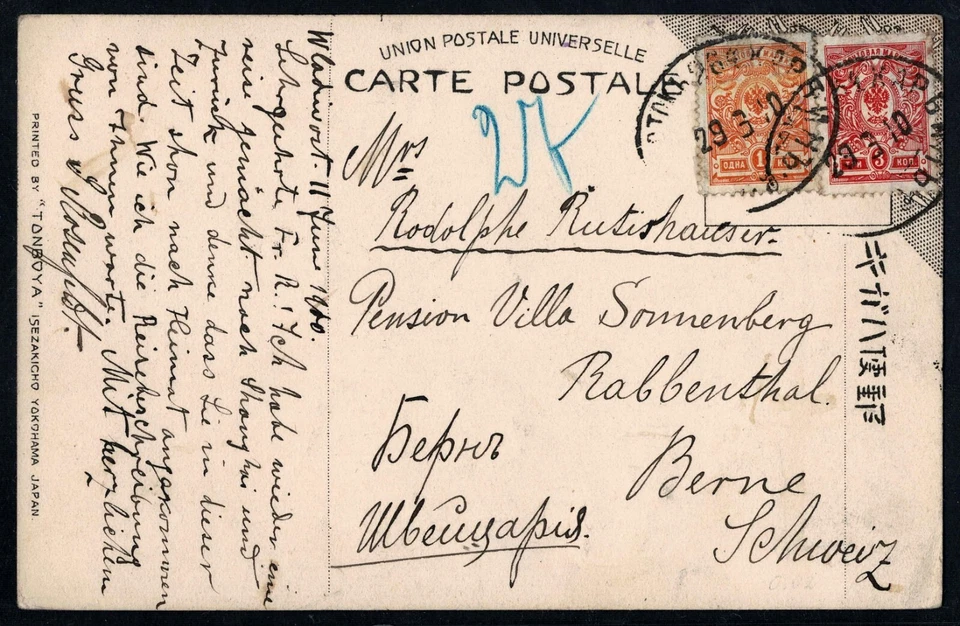 UNION POSTALE UNIVERSELLE
CARTE POSTALE
Mrs
Rodolphe Rutishauser.
Pension Villa Sonnenberg
Rabbenthal.
Бернъ
Berne
Швейцарія.
Schweiz
Wladiwost. 11 June 1910.
Sehrgeehrte Fr. R.! Ich habe wieder eine
reise gemacht nach Shanghai und
zurück und denke dass Sie in dieser
Zeit schon nach Heimat angekommen
sind. Wie ich die Reisebeschreibung
von Ihnen warte. Mit herzlichen
Gruss
PRINTED BY "TONBOYA" ISEZAKICHO YOKOHAMA JAPAN.
ОДНА 1 КОП.
ТРИ 3 КОП.
29 5 10
29 5 10